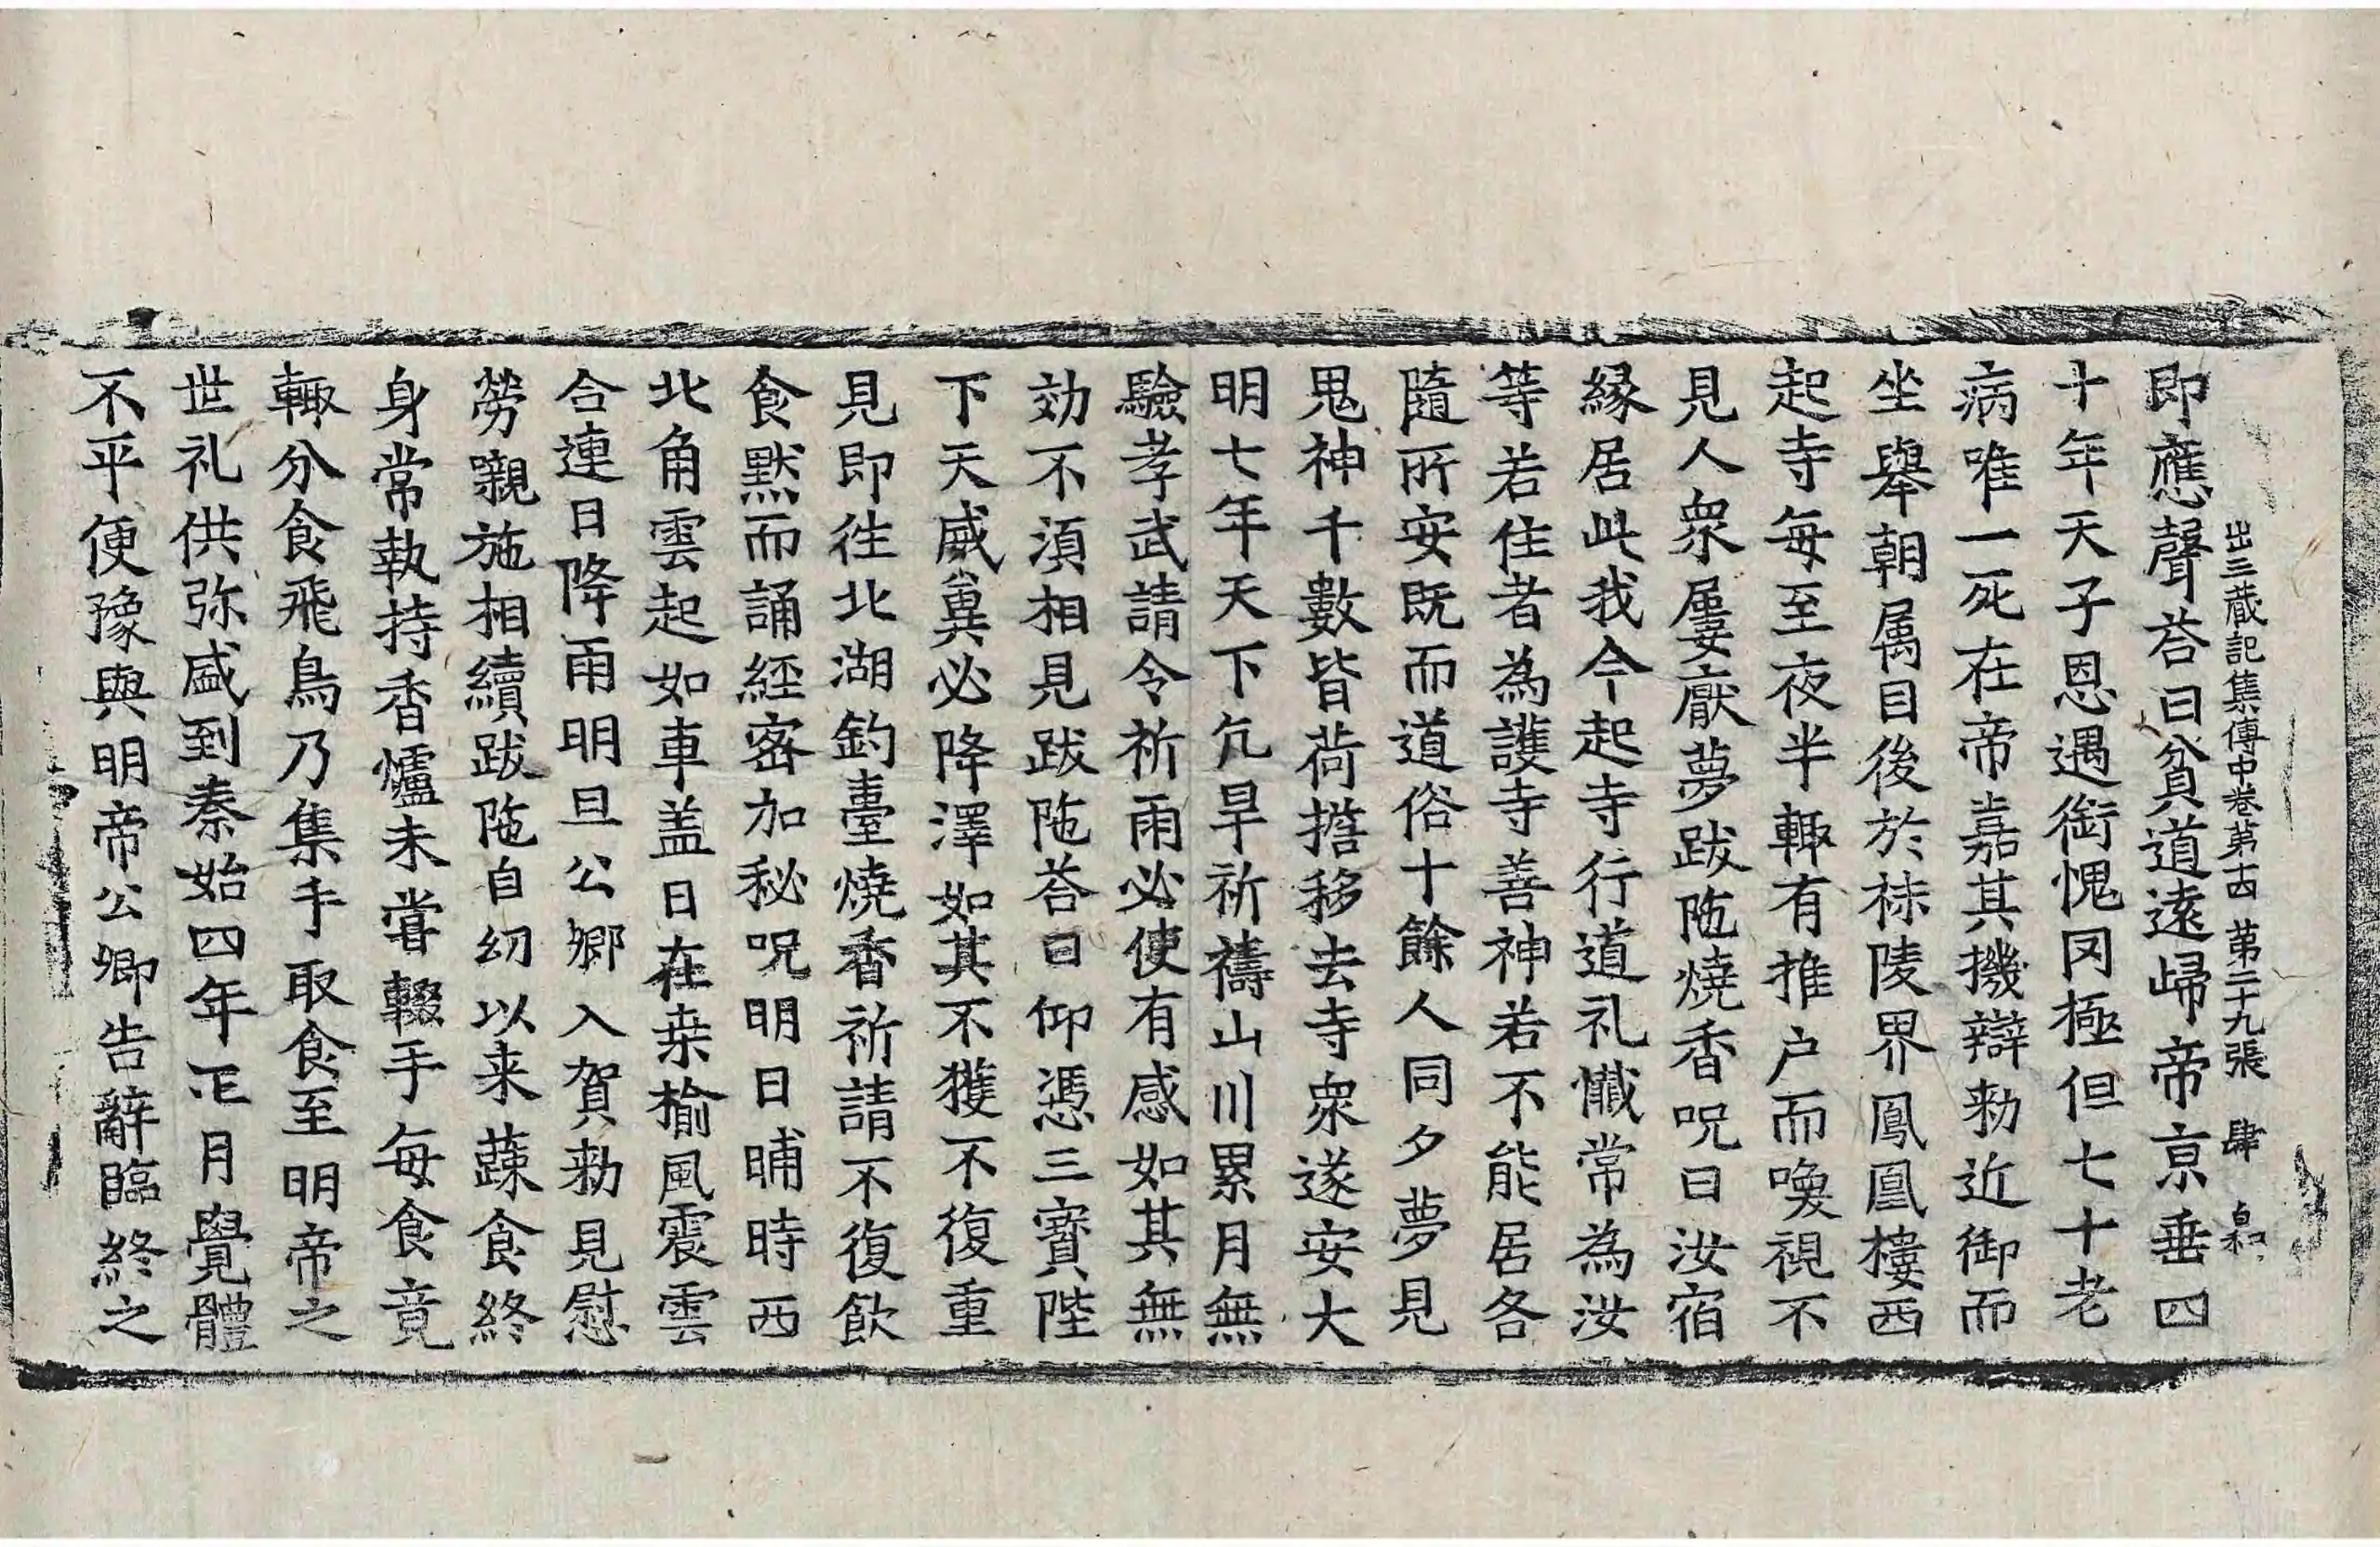 出三蔵記集傳中卷第十四 第二十九張 肆 白和
即應聲荅曰貧道遠歸帝京垂四
十年天子恩遇銜愧罔極但七十老
病唯一死在帝嘉其機辯勑近御而
坐舉朝属目後於秣陵界鳳凰樓西
起寺每至夜半輙有推户而喚視不
見人衆屢厭夢跋陁燒香呪曰汝宿
縁居此我今起寺行道礼懺常為汝
等若住者為護寺善神若不能居各
隨所安既而道俗十餘人同夕夢見
鬼神千數皆荷擔移去寺衆遂安大
明七年天下亢旱祈禱山川累月無
驗孝武請令祈雨必使有感如其無
効不湏相見跋陁荅曰仰憑三寶陛
下天威冀必降澤如其不獲不復重
見即徃北湖釣臺燒香祈請不復飲
食默而誦經密加秘呪明日晡時西
北角雲起如車盖日在桒榆風震雲
合連日降雨明旦公卿入賀勑見慰
勞嚫施相續跋陁自幼以来蔬食終
身常執持香爐未甞輟手每食竟
輙分食飛鳥乃集手取食至明帝之
世礼供弥盛到泰始四年正月覺體
不平便豫與明帝公卿告辭臨終之